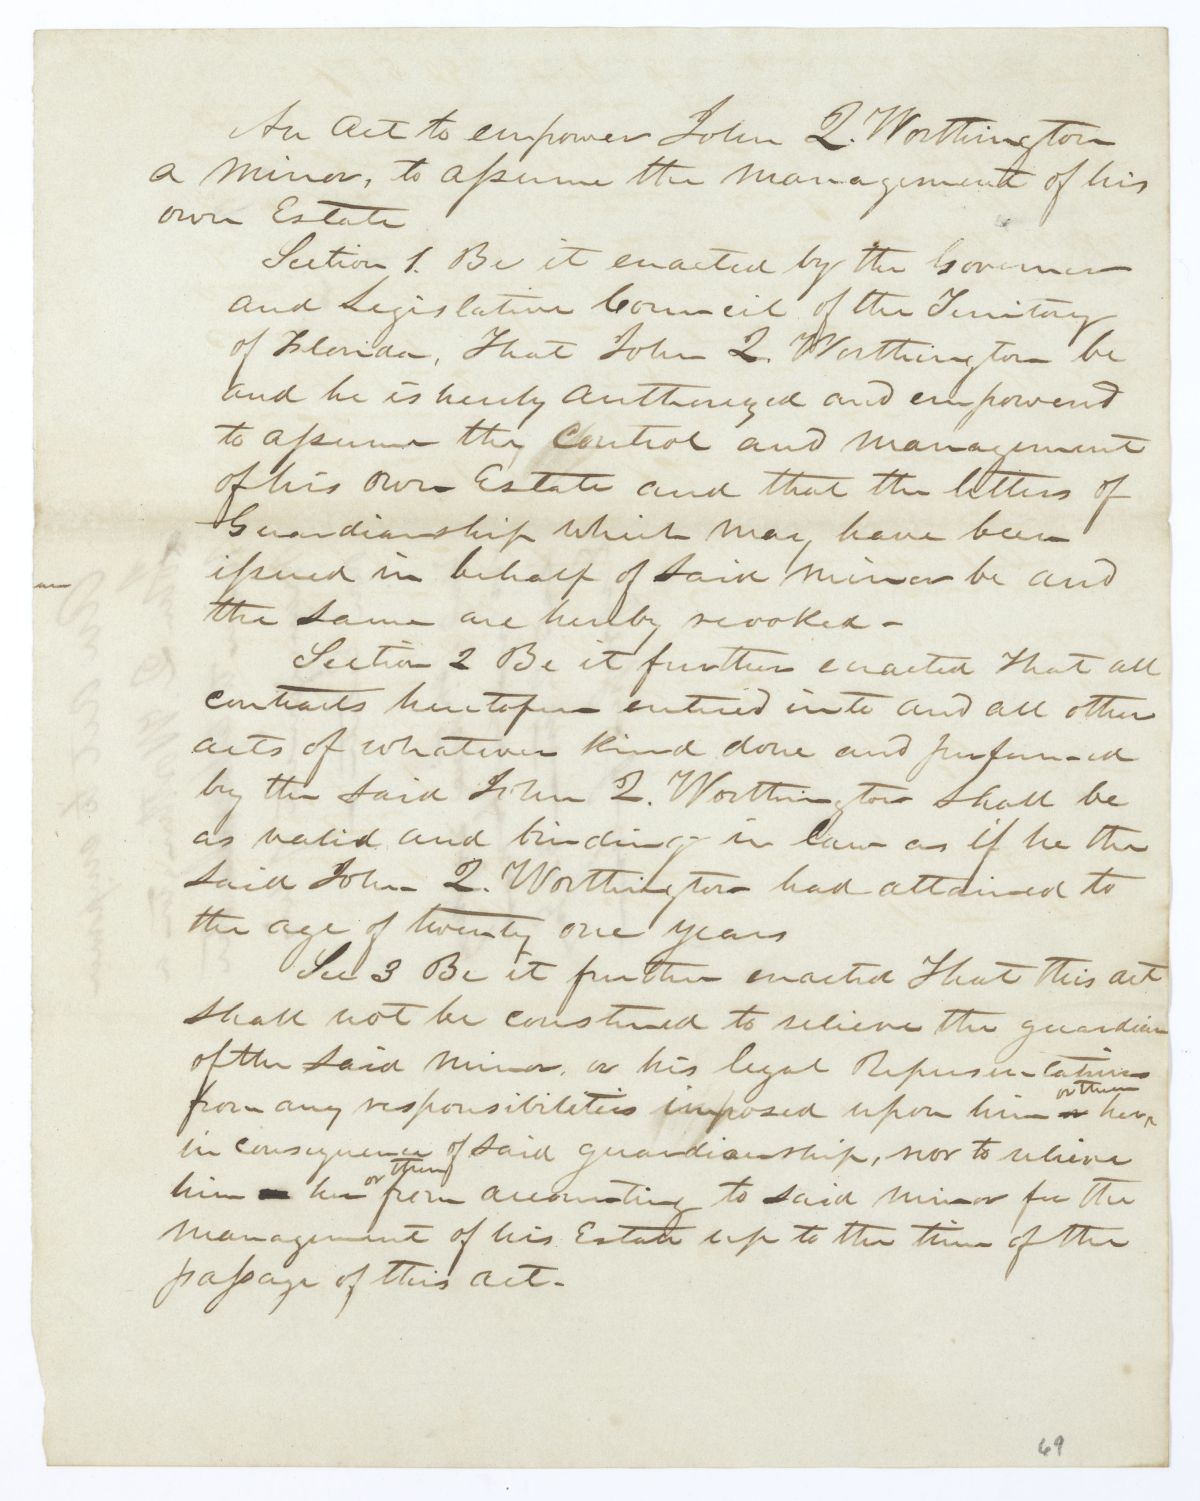 An Act to empower John Q. Worthington
a minor, to assume the management of his
own Estate
Section 1. Be it enacted by the Governor
and Legislative Council of the Territory
of Florida, That John Q. Worthington be
and he is hereby authorized and empowered
to assume the control and management
of his own Estate and that the letters of
Guardianship which may have been
issued in behalf of said minor be and
the same are hereby revoked -
Section 2 Be it further enacted That all
contracts heretofore entered into and all other
acts of whatever kind done and performed
by the said John Q. Worthington shall be
as valid and binding in law as if he the
said John Q. Worthington had attained to
the age of twenty one years
Sec 3 Be it further enacted That this act
shall not be construed to relieve the guardian
of the said minor, or his legal Representatives
from any responsibilities imposed upon him or her or them
in consequence of said guardianship, nor to relieve
him or her or them from accounting to said minor for the
management of his Estate up to the time of the
passage of this act.
69